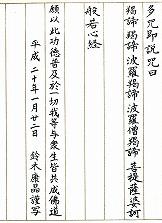 多咒即説咒曰
羯諦羯諦波羅羯諦波羅僧羯諦菩提薩婆訶
般若心経
願以此功徳普及於一切我等与衆生皆共成佛道
平成二十年一月廿二日　鈴木廉晶謹写